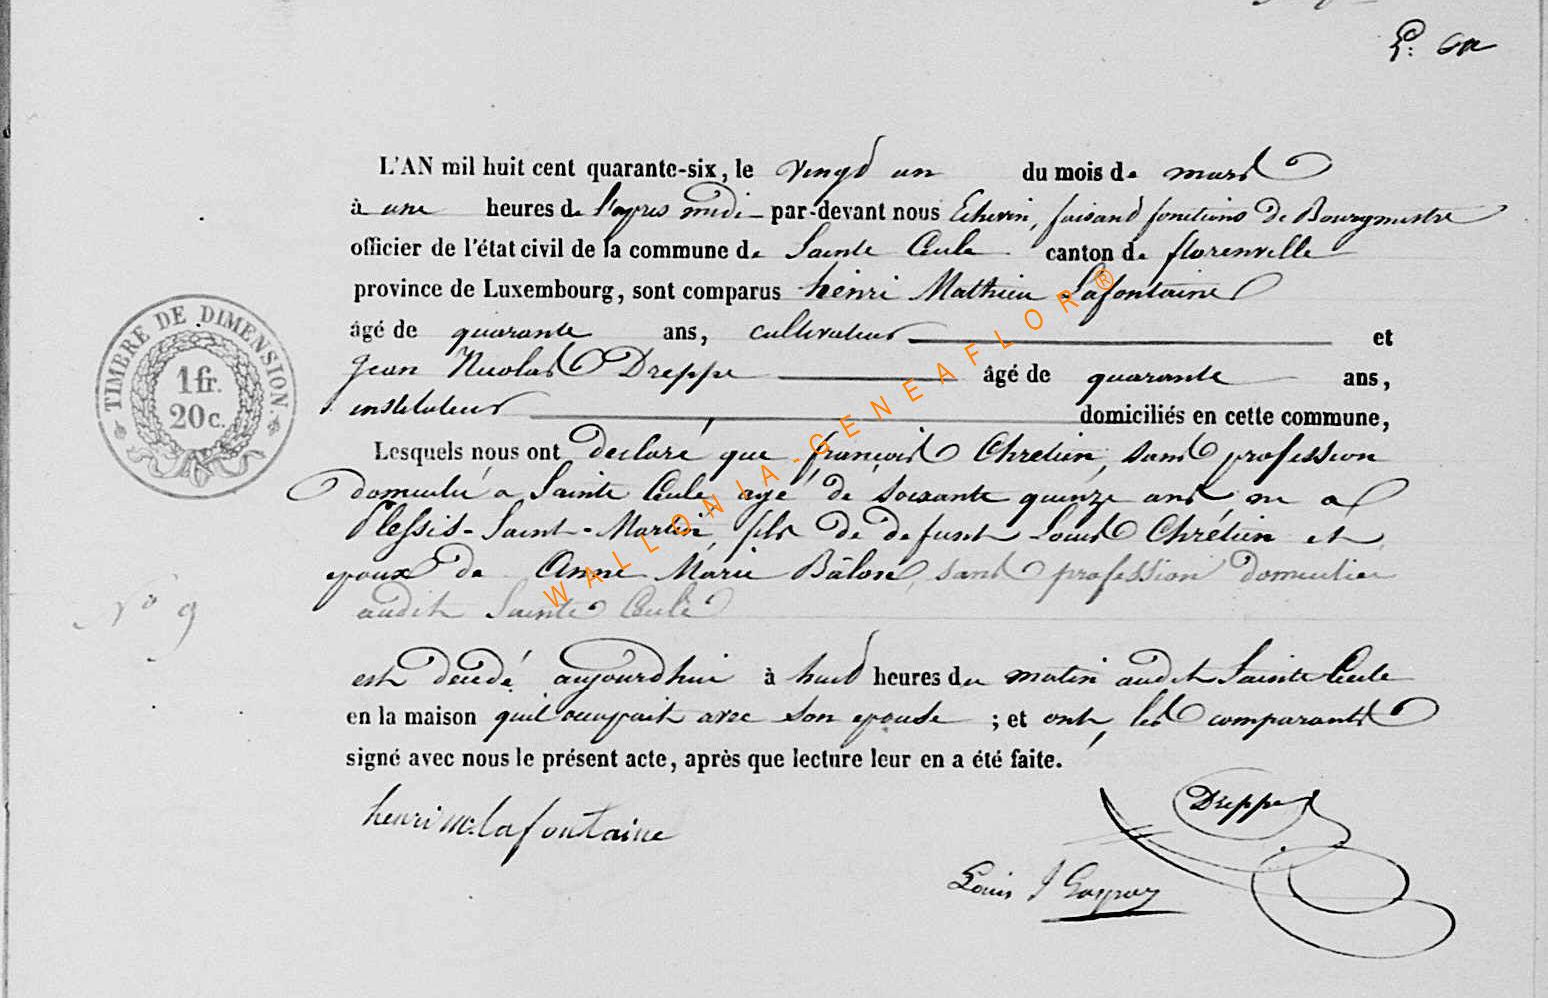 L'AN mil huit cent quarante-six, le vingt un du mois de mars
à une heures de l'apres midi par-devant nous Echevin, faisant fonctions de Bourgmestre
officier de l'état civil de la commune de Sainte Cecile canton de florenville
province de Luxembourg, sont comparus henri Mathieu Lafontaine
âgé de quarante ans, cultivateur et
Jean Nicolas Dreppe âgé de quarante ans,
instituteur domiciliés en cette commune,
Lesquels nous ont declaré que françois Chretien, sans profession
domicilié a Sainte Cecile, agé de soixante quinze ans, né a
Plessis-Saint-Martin, fils de defunt Louis Chrétien et
epoux de Anne Marie Bâlon, sans profession domiciliée
audit Sainte Cecile
N° 9
est decedé aujourd'hui à huit heures du matin audit Sainte Cecile
en la maison qu'il occupait avec son epouse ; et ont, les comparants
signé avec nous le présent acte, après que lecture leur en a été faite.
henri M. lafontaine
Dreppe
Louis J
TIMBRE DE DIMENSION.
1 fr.
20 c.
WALLONIA-GENEAFLOR®